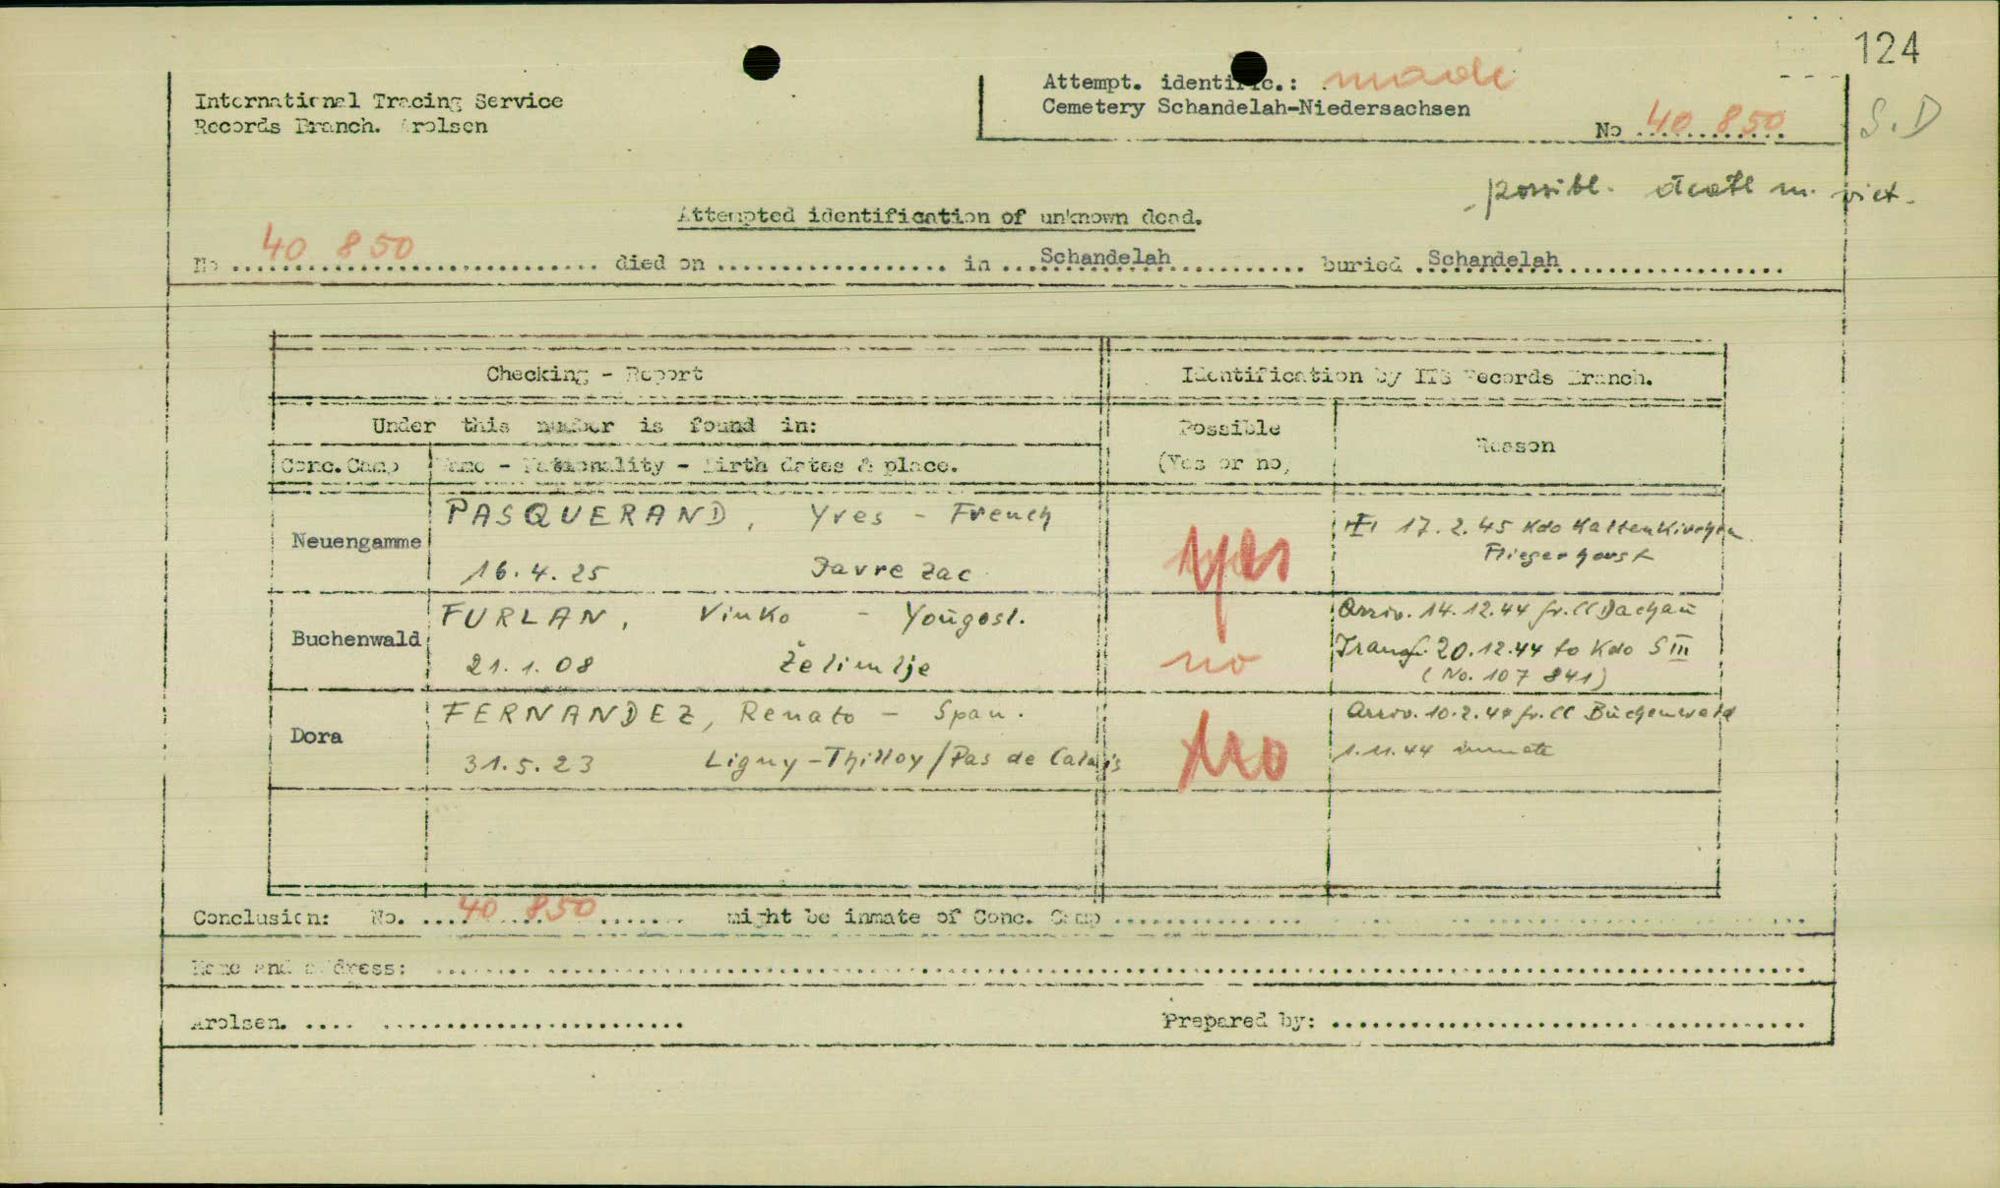 124
International Tracing Service
Records Branch. Arolsen
Attempt. identific.: made
Cemetery Schandelah-Niedersachsen
No 40 850
S.D
possibl. death m. vict.
Attempted identification of unknown dead.
No 40 850 died on in Schandelah buried Schandelah
Checking - Report
Identification by ITS Records Branch.
Under this number is found in:
Possible
(Yes or no)
Reason
Conc. Camp
Name - Nationality - Birth dates & place.
Neuengamme
PASQUERAND, Yves - French
16.4.25 Favrezac
yes
17.2.45 Kdo Kaltenkirchen
Fliegerhorst
Buchenwald
FURLAN, Vinko - Yougosl.
21.1.08 Želimlje
no
Arriv. 14.12.44 fr. CC Dachau
Transf. 20.12.44 to Kdo S III
(No. 107 841)
Dora
FERNANDEZ, Renato - Span.
31.5.23 Ligny-Thilloy/Pas de Calais
no
Arriv. 10.2.44 fr. CC Buchenwald
1.11.44 inmate
Conclusion: No. 40 850 might be inmate of Conc. Camp
Name and address:
Arolsen.
Prepared by: